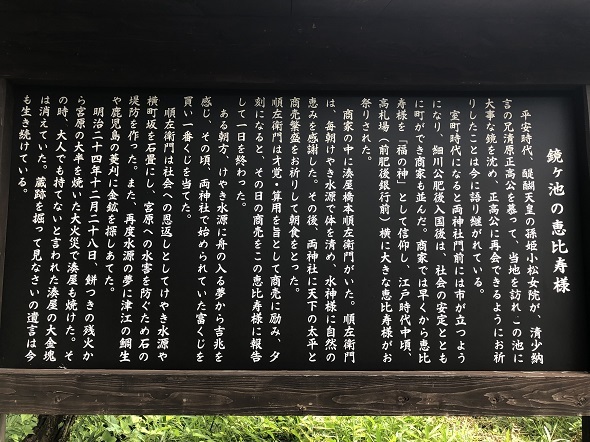 鏡ヶ池の恵比寿様
平安時代、醍醐天皇の孫姫小松女院が、清少納
言の兄清原正高公を慕って、当地を訪れ、この池に
大事な鏡を沈め、正高公に再会できるようにお祈
りしたことは今に語り継がれている。
室町時代になると両神社門前には市が立つよう
になり、細川公肥後入国後は、社会の安定ととも
に町ができ商家も並んだ。商家では早くから恵比
寿様を「福の神」として信仰し、江戸時代中頃、
高札場(前肥後銀行前)横に大きな恵比寿様がお
祭りされた。
商家の中に湊屋橋本順左衛門がいた。順左衛門
は、毎朝けやき水源で体を清め、水神様に自然の
恵みを感謝した。その後、両神社に天下の太平と
商売繁盛をお祈りして朝食をとった。
順左衛門は才覚・算用を旨として商売に励み、夕
刻になると、その日の商売をこの恵比寿様に報告
して一日を終わった。
ある朝方、けやき水源に舟の入る夢から吉兆を
感じ、その頃、両神社で始められていた富くじを
買い一番くじを当てた。
順左衛門は社会への恩返しとしてけやき水源や
横町坂を石畳にし、宮原への水害を防ぐため石の
堤防を作った。また、再度水源の夢に津江の鯛生
や鹿児島の菱刈に金鉱を探しあてた。
明治二十四年十二月二十八日、餅つきの残火か
ら宮原の大半を焼いた大火災で湊屋も焼けた。そ
の時、大人でも持てないと言われた湊屋の大金塊
は消えていた。蔵跡を掘って見なさいの遺言は今
も生き続けている。